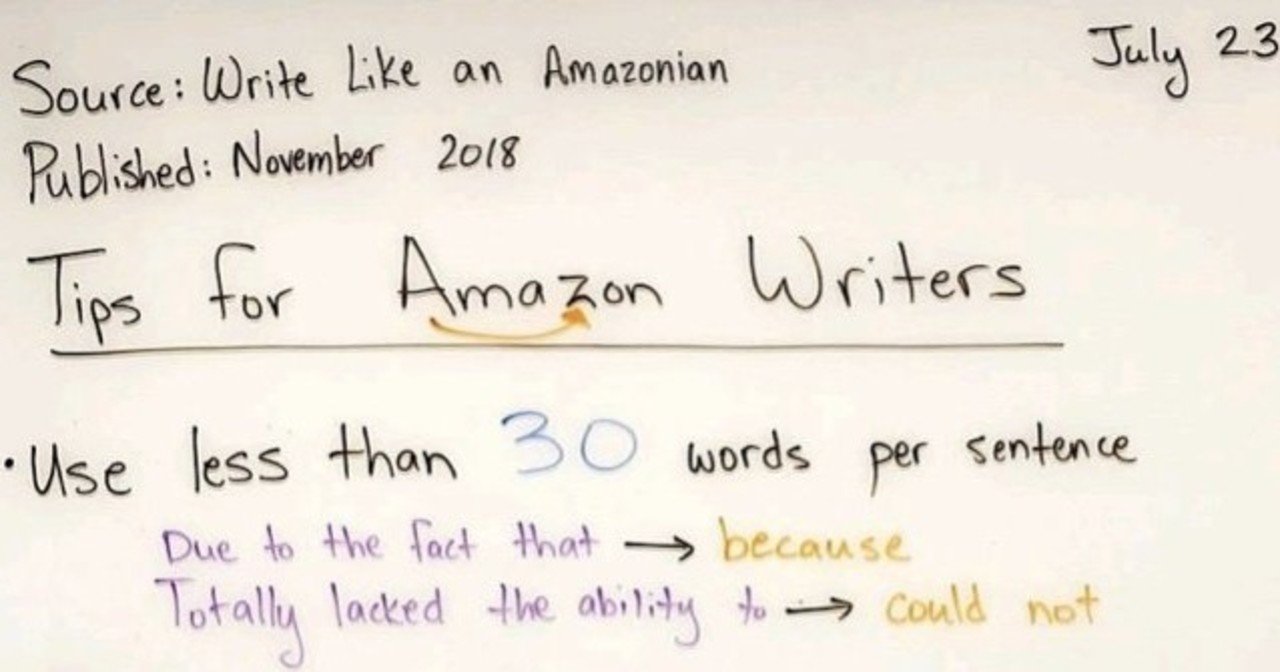 Source: Write Like an Amazonian
July 23
Published: November 2018
Tips for Amazon Writers
• Use less than 30 words per sentence
Due to the fact that → because
Totally lacked the ability to → could not